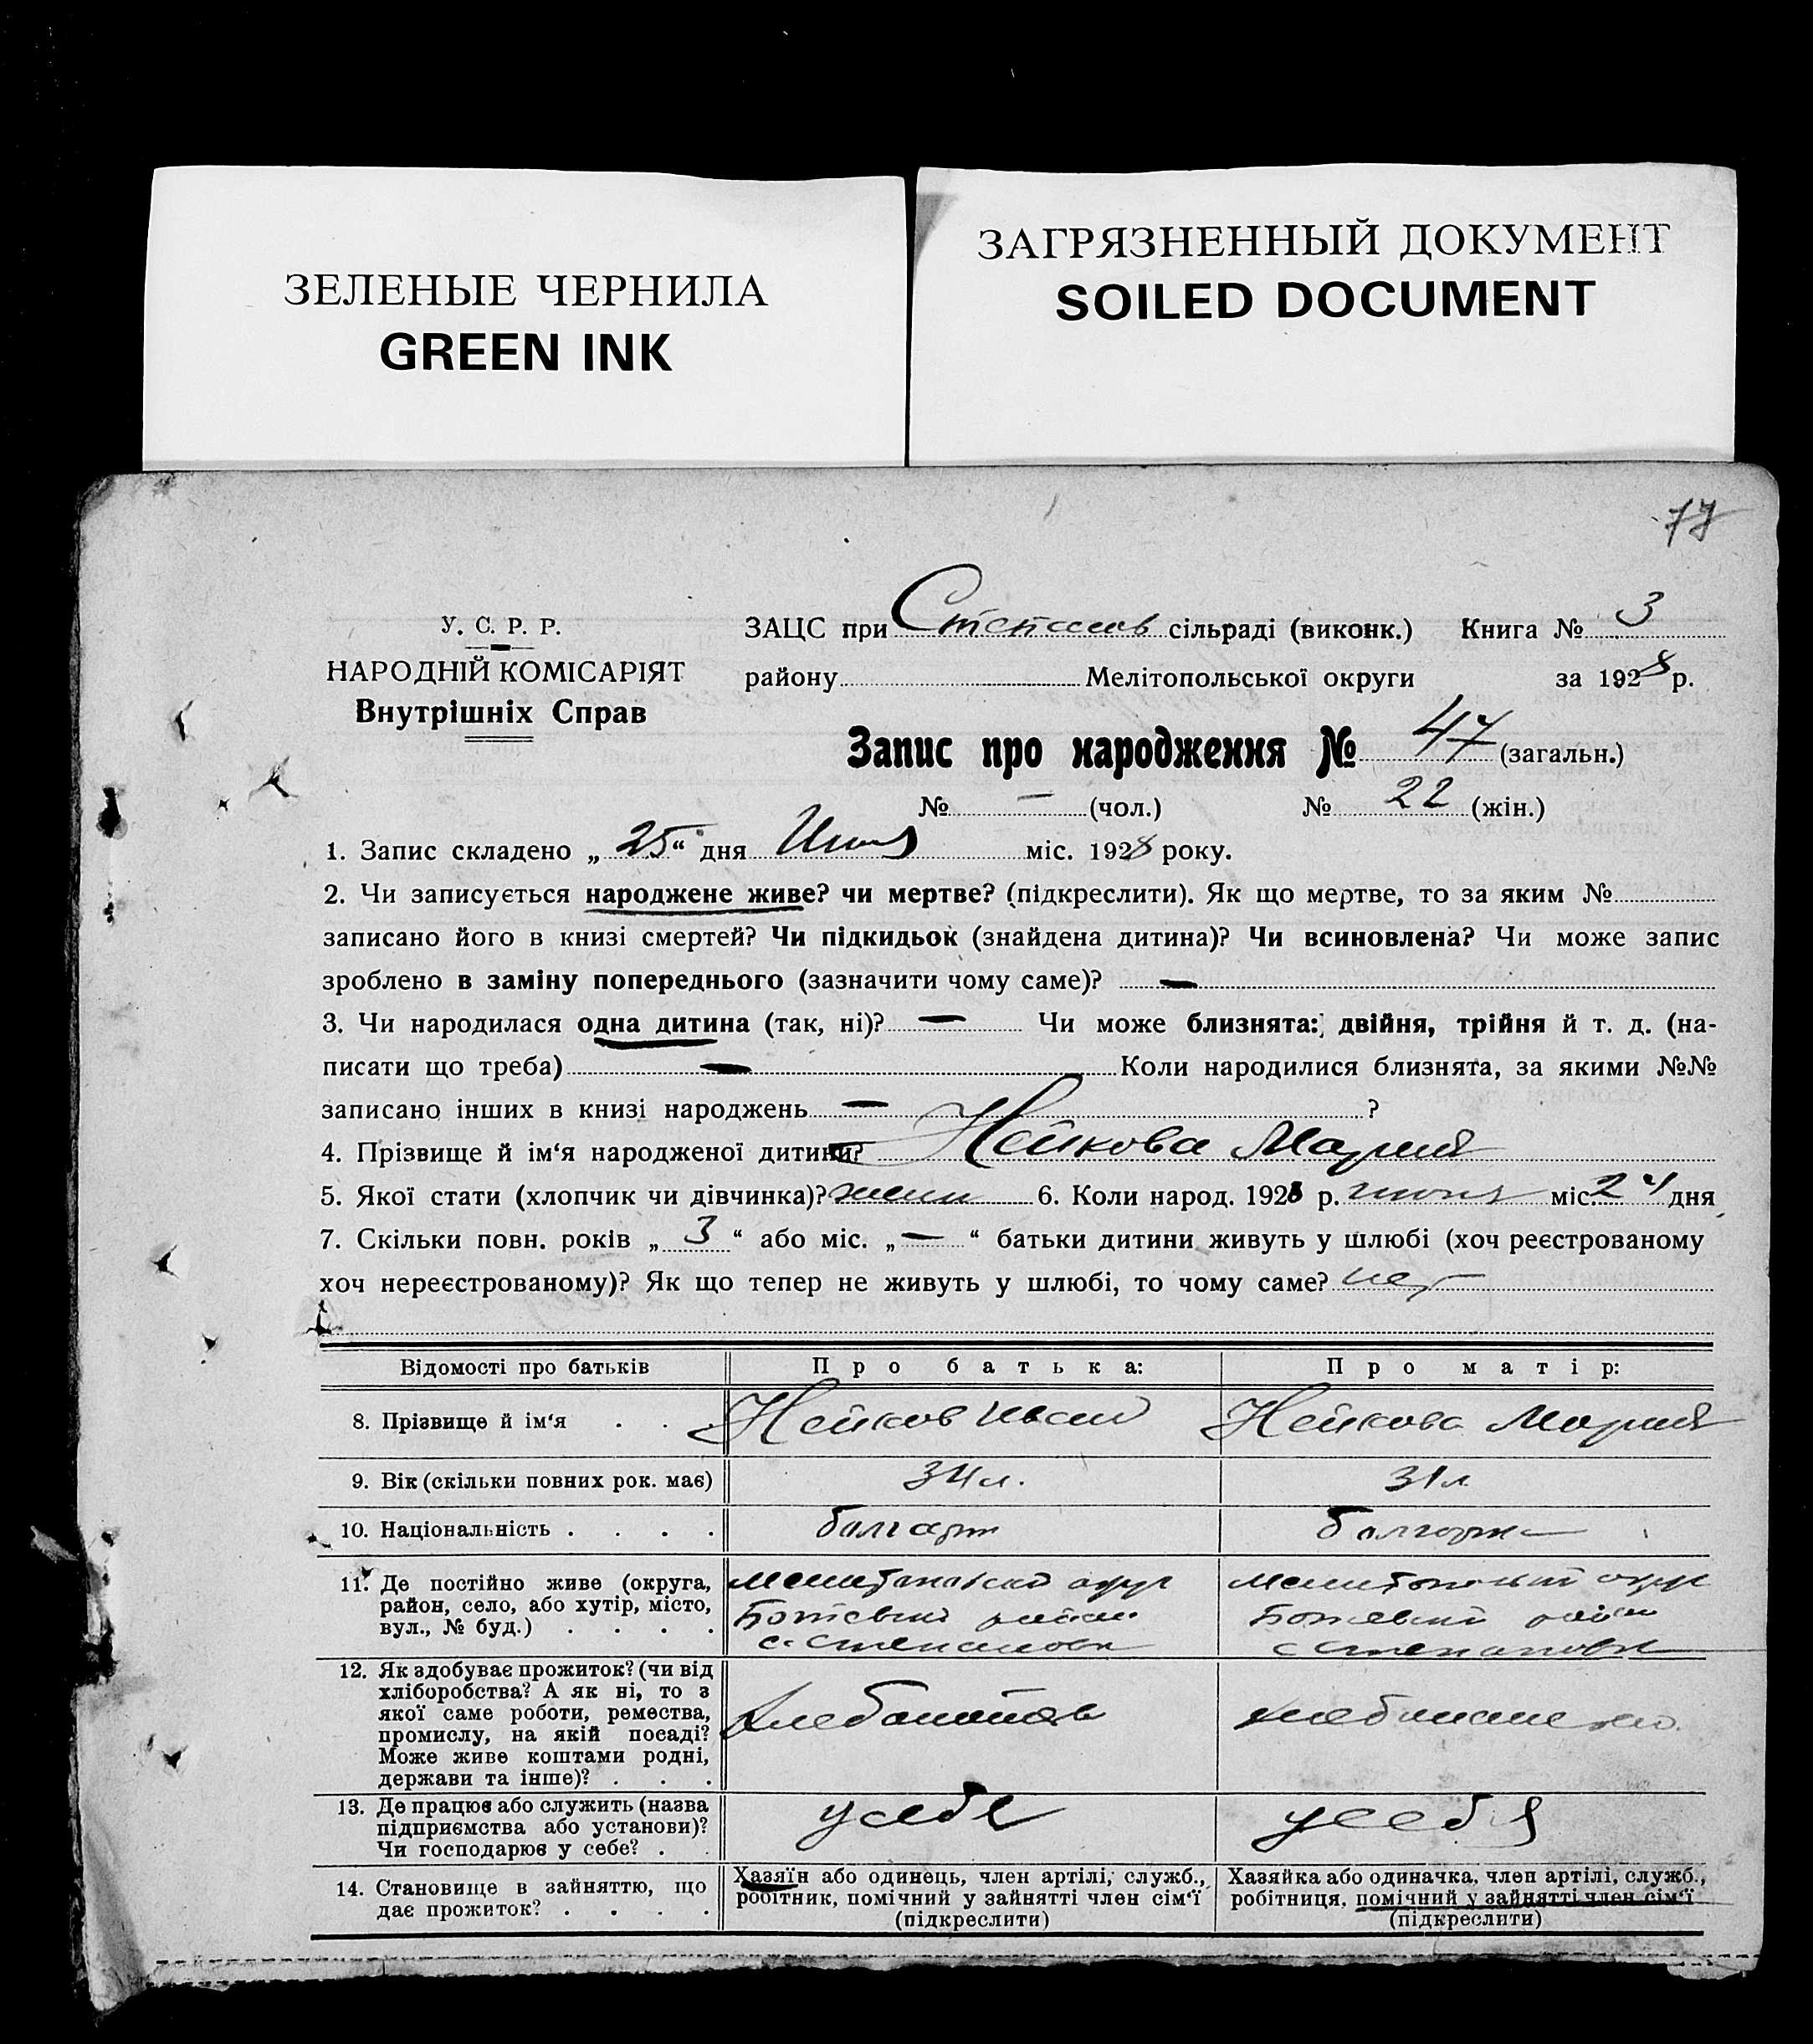 ЗЕЛЕНЫЕ ЧЕРНИЛА
GREEN INK
ЗАГРЯЗНЕННЫЙ ДОКУМЕНТ
SOILED DOCUMENT
77
У. С. Р. Р.
НАРОДНІЙ КОМІСАРІЯТ
Внутрішніх Справ
ЗАЦС при Степанов сільраді (виконк.) Книга № 3
району Мелітопольської округи за 1928 р.
Запис про народження № 47 (загальн.)
№ — (чол.) № 22 (жін.)
1. Запис складено „ 25 “ дня міс. 1928 року.
2. Чи записується народжене живе? чи мертве? (підкреслити). Як що мертве, то за яким №
записано його в книзі смертей? Чи підкидьок (знайдена дитина)? Чи всиновлена? Чи може запис
зроблено в заміну попереднього (зазначити чому саме)? —
3. Чи народилася одна дитина (так, ні)? — Чи може близнята: двійня, трійня й т. д. (на-
писати що треба) — Коли народилися близнята, за якими №№
записано інших в книзі народжень — ?
4. Прізвище й ім‘я народженої дитини? Нейкова Мария
5. Якої стати (хлопчик чи дівчинка)? жен 6. Коли народ. 1928 р. июня міс. 24 дня
7. Скільки повн. років „ 3 “ або міс. „ — “ батьки дитини живуть у шлюбі (хоч реєстрованому
хоч нереєстрованому)? Як що тепер не живуть у шлюбі, то чому саме? нет
Відомості про батьків Про батька: Про матір:
8. Прізвище й ім‘я . . . Нейков Иван Нейкова Мария
9. Вік (скільки повних рок. має) 34 л. 31 л
10. Національність . . . . болгарин болгарка
11. Де постійно живе (округа, Мелитопольский округ Мелитопольский округ
район, село, або хутір, місто, Ботевский район Ботевский район
вул., № буд.) . . . . с. Степановка с Степановка
12. Як здобуває прожиток? (чи від
хліборобства? А як ні, то з
якої саме роботи, ремества, Хлебопашев
промислу, на якій посаді?
Може живе коштами родні,
держави та інше)? . . .
13. Де працює або служить (назва у себе у себя
підприємства або установи)?
Чи господарює у себе? . .
14. Становище в зайняттю, що Хазяїн або одинець, член артілі, служб., Хазяйка або одиначка, член артілі, служб.,
дає прожиток? . . . . робітник, помічний у зайнятті член сім‘ї робітниця, помічний у зайнятті член сім‘ї
(підкреслити) (підкреслити)